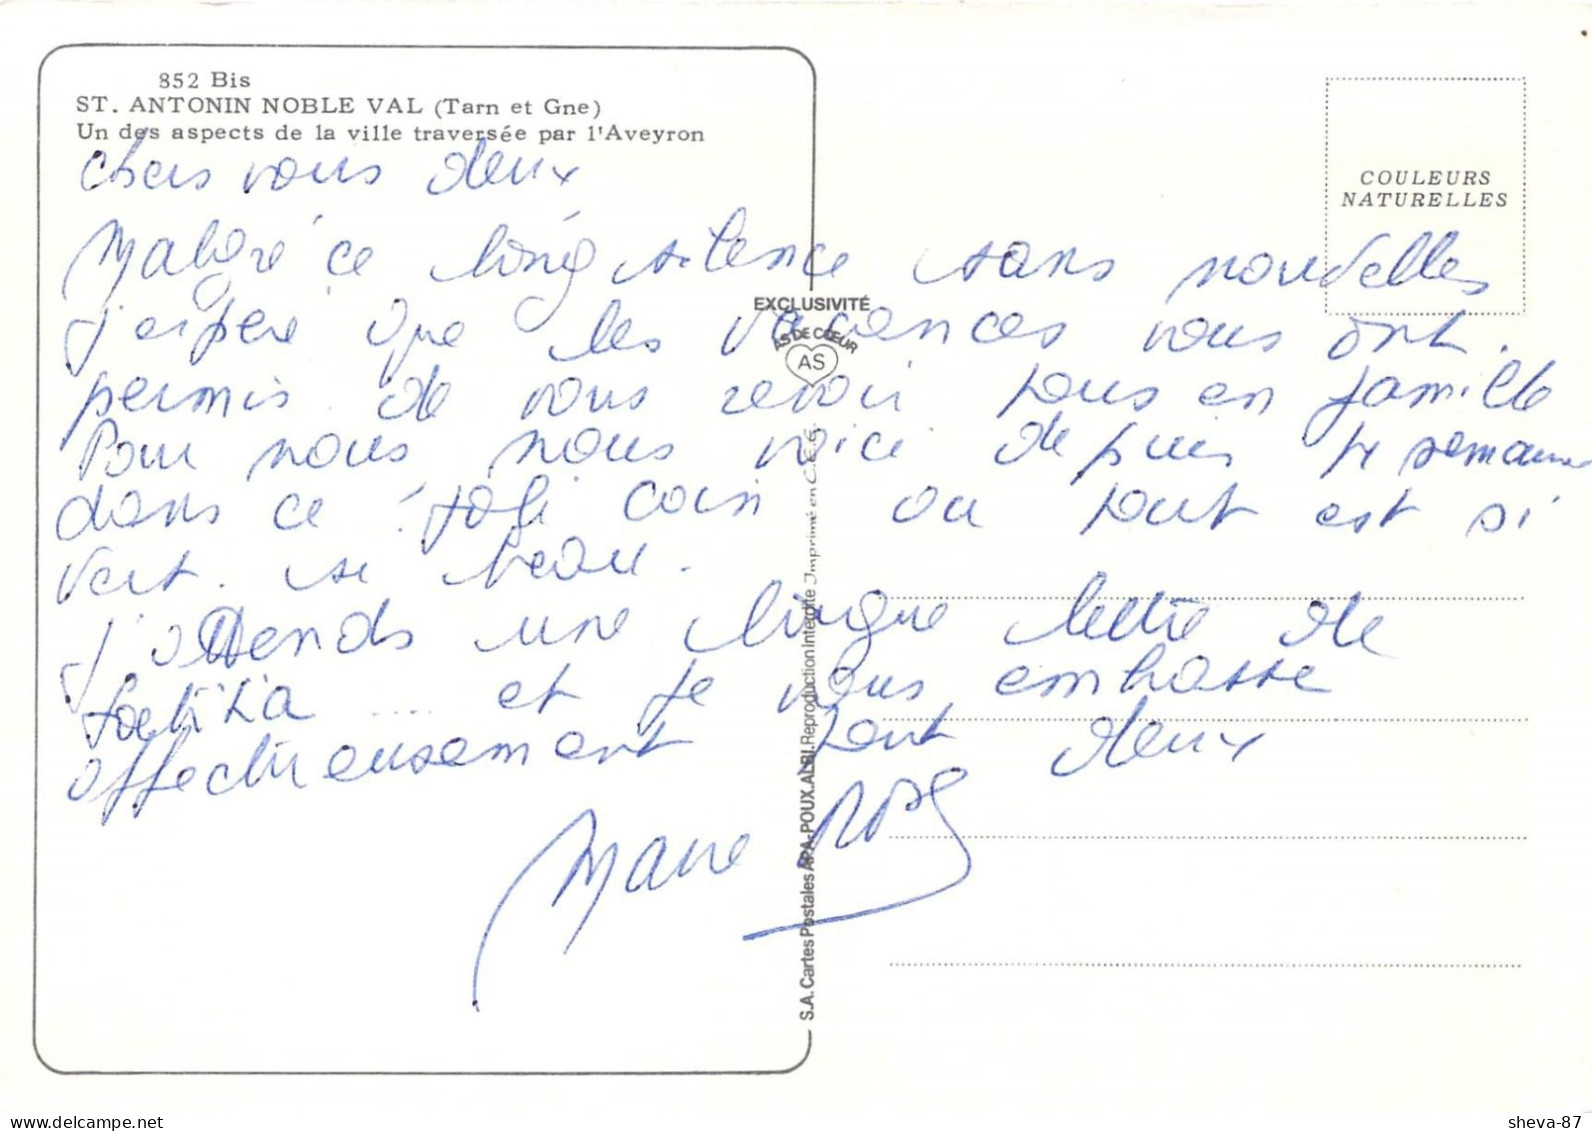 852 Bis
ST. ANTONIN NOBLE VAL (Tarn et Gne)
Un des aspects de la ville traversée par l'Aveyron
COULEURS
NATURELLES
chers vous deux
Malgré ce long silence sans nouvelles
j'espère que les vacances vous ont
permis de vous revoir tous en famille
Pour nous nous voici depuis semaines
dans ce joli coin ou tout est si
vert. si beau.
j'attends une longue lettre de
.... et je vous embrasse
affectueusement tout deux
EXCLUSIVITÉ
AS DE CŒUR
AS
S.A. Cartes Postales APA-POUX.ALBI. Reproduction Interdite Imprimé en C.E.E.
delcampe.net
sheva-87